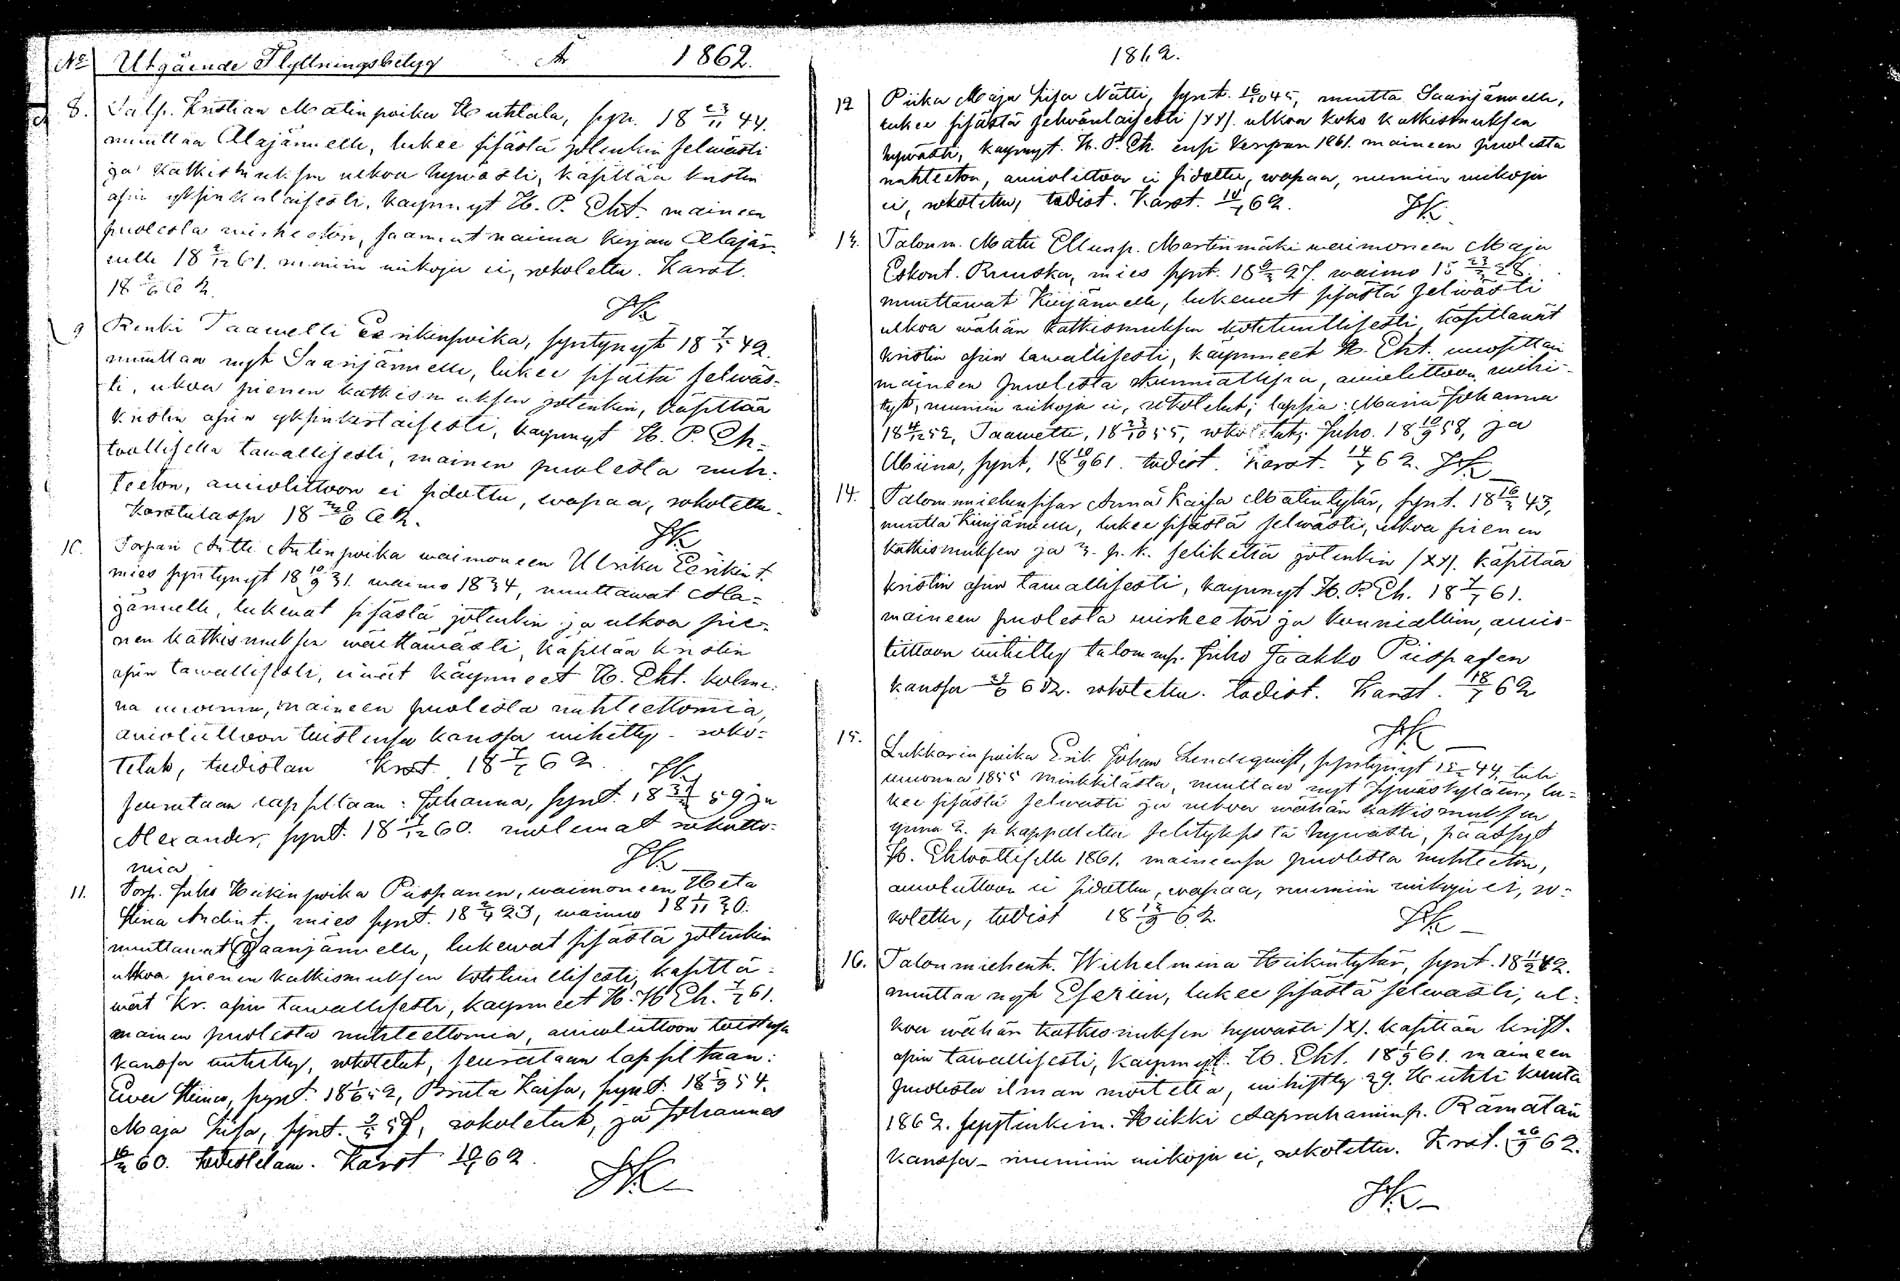 No Utgående Flyttningsbetyg År 1862.
8. Talp. Kristian Matinpoika Huhtala, syn. 18 23/11 44.
muuttaa Alajärwelle, lukee sisästä jotenkin selwästi
ja katkismuksen ulkoa hywästi, käsittää kristin
opin yksinkertaisesti, kaynnyt H. P. Eht. maineen
puolesta wirheetön, saanut naima kirjan Alajär-
welle 18 2/12 61. muniin wikoja ei, rokolettu. Karst.
18 2/6 62.
HK
9 Renki Taawetti Eerikinpoika, syntynyt 18 7/5 42.
muuttaa nyt Saarijärwelle, lukee sisältä selwäs-
ti, ulkoa pienen katkismuksen jotenkin, käsittää
kristin opin yksinkertaisesti, kaynnyt H. P. Eh-
toollisella tawallisesti, mainen puolesta nuh-
teeton, awioliittoon ei sidottu, wapaa, rokolettu.
Karstulassa 18 20/6 62.
HK
10. Torpari Antti Antinpoika waimoneen Ulrika Eerikint.
mies syntynyt 18 10/9 31. waimo 1834, muuttawat Ala-
järwelle, lukewat sisästä jotenkin ja ulkoa pie-
nen katkismuksen wälttäwästi, käsittää kristin
opin tawallisesti, eiwät käynneet H. Eht. kolme-
na wuonna, maineen puolesta nuhteettomia,
awioliittoon toistensa kanssa wihitty - roko-
tetut, todistaa Krst. 18 7/7 62.
HK
seurataan lapsiltaan: Johanna, synt. 18 31/3 59 ja
Alexander, synt. 18 4/12 60. molemat rokotto-
mia
HK
11. Torp. Juho Heikinpoika Piispanen, waimoneen Heta
Stina Andint. mies synt. 18 2/4 23, waimo 18 1/11 20.
muuttawat Saarijärwelle, lukewat sisästä jotenkin
ulkoa pienen katkismuksen kohtuullisesti, kasittä-
wät kr. opin tawallisesti, kaynneet H. H. Eh. 7/7 61.
mainen puolesta nuhteettomia, awioliittoon toistensa
kanssa wihitty, rokotetut, seurataan lapsiltaan:
Ewa Stiina, synt. 18 1/6 52, Briita Kaisa, synt. 18 5/9 54.
Maja Liisa, synt. 2/5 57, rokoletut, ja Johannes
16/2 60. todistetaan. Karst 10/7 62.
HK
1862.
12 Piika Maja Liisa Nätti, synt. 16/10 45, muutta Saarijärwelle,
lukee sisästä selwänlaisesti /XX/. ulkoa koko katkismuksen
hywästi, kaynnyt H. P. Eh. ensi kerran 1861. maineen puolesta
nuhteeton, awioliittoon ei sidottu, wapaa, muniin wikoja
ei, rokolettu, todist. Karst. 10/7 62.
HK
13. Talonm. Matti Ellunp. Martinmäki waimoneen Maja
Eskont. Ruuska, mies synt. 18 6/3 27 waimo 18 23/3 28.
muuttawat Kiijärwelle, lukewat sisästä selwästi
ulkoa wähän katkismuksen kohtuullisesti, käsittäwät
kristin opin tawallisesti, käynneet H. Eht. wuosittain
maineen puolesta kunniallisia, awioliittoon wihi-
tyt, muniin wikoja ei, rokoletut; lapsia: Maria Johanna
18 4/12 52, Taawetti, 18 23/10 55, rokoletut; Juho. 18 10/9 58, ja
Miina, synt, 18 10/9 61. todist. Karst. 14/7 62. HK
14. Talonmiehensisar Anna Kaisa Matintytär, synt. 18 16/2 43,
muutta Kiijärwelle, lukee sisästä selwästi, ulkoa pienen
katkismuksen ja 3. p. k. selikettä jotenkin /XX/. käsittää
kristin opin tawallisesti, kaynnyt H. P. Eh. 18 7/7 61.
maineen puolesta wirheetön ja kunniallinen, awio-
liittoon wihitty talonmp. Juho Jaakko Piispasen
kanssa 29/6 62. rokolettu. todist. Karst. 18/7 62
HK
15. Lukkarinpoika Erik Johan Lindeqvist, syntynyt 18 /2 44, tuli
wuonna 1855 minkkilästa, muuttaa nyt Jywäskylään, lu-
kee sisästä selwasti ja ulkoa wähän katkismuksen
ynnä 2. p kappaletten selityksistä hywästi, päässyt
H. Ehtoollisella 1861, maineensa puolesta nuhteeton,
awioliittoon ei sidottu, wapaa, muniin wikoja ei, ro-
kolettu, todist 18 13/9 62.
HK
16. Talonmiehent. Wilhelmina Heikintytär, synt. 18 11/2 42.
muuttaa nyt Eseriin, lukee sisästä selwasti, ul-
koa wähän katkismuksen hywasti /X/. kasittää krist-
opin tawallisesti, kaynnyt H. Eht. 18 1/9 61. maineen
puolesta ilman moitetta, wihitty 29. Huhti kuuta
1862. Heikki Aaprahaminp. Rämälän
kanssa - muniin wikoja ei, rokolettu. Krst. 26/9 62.
HK